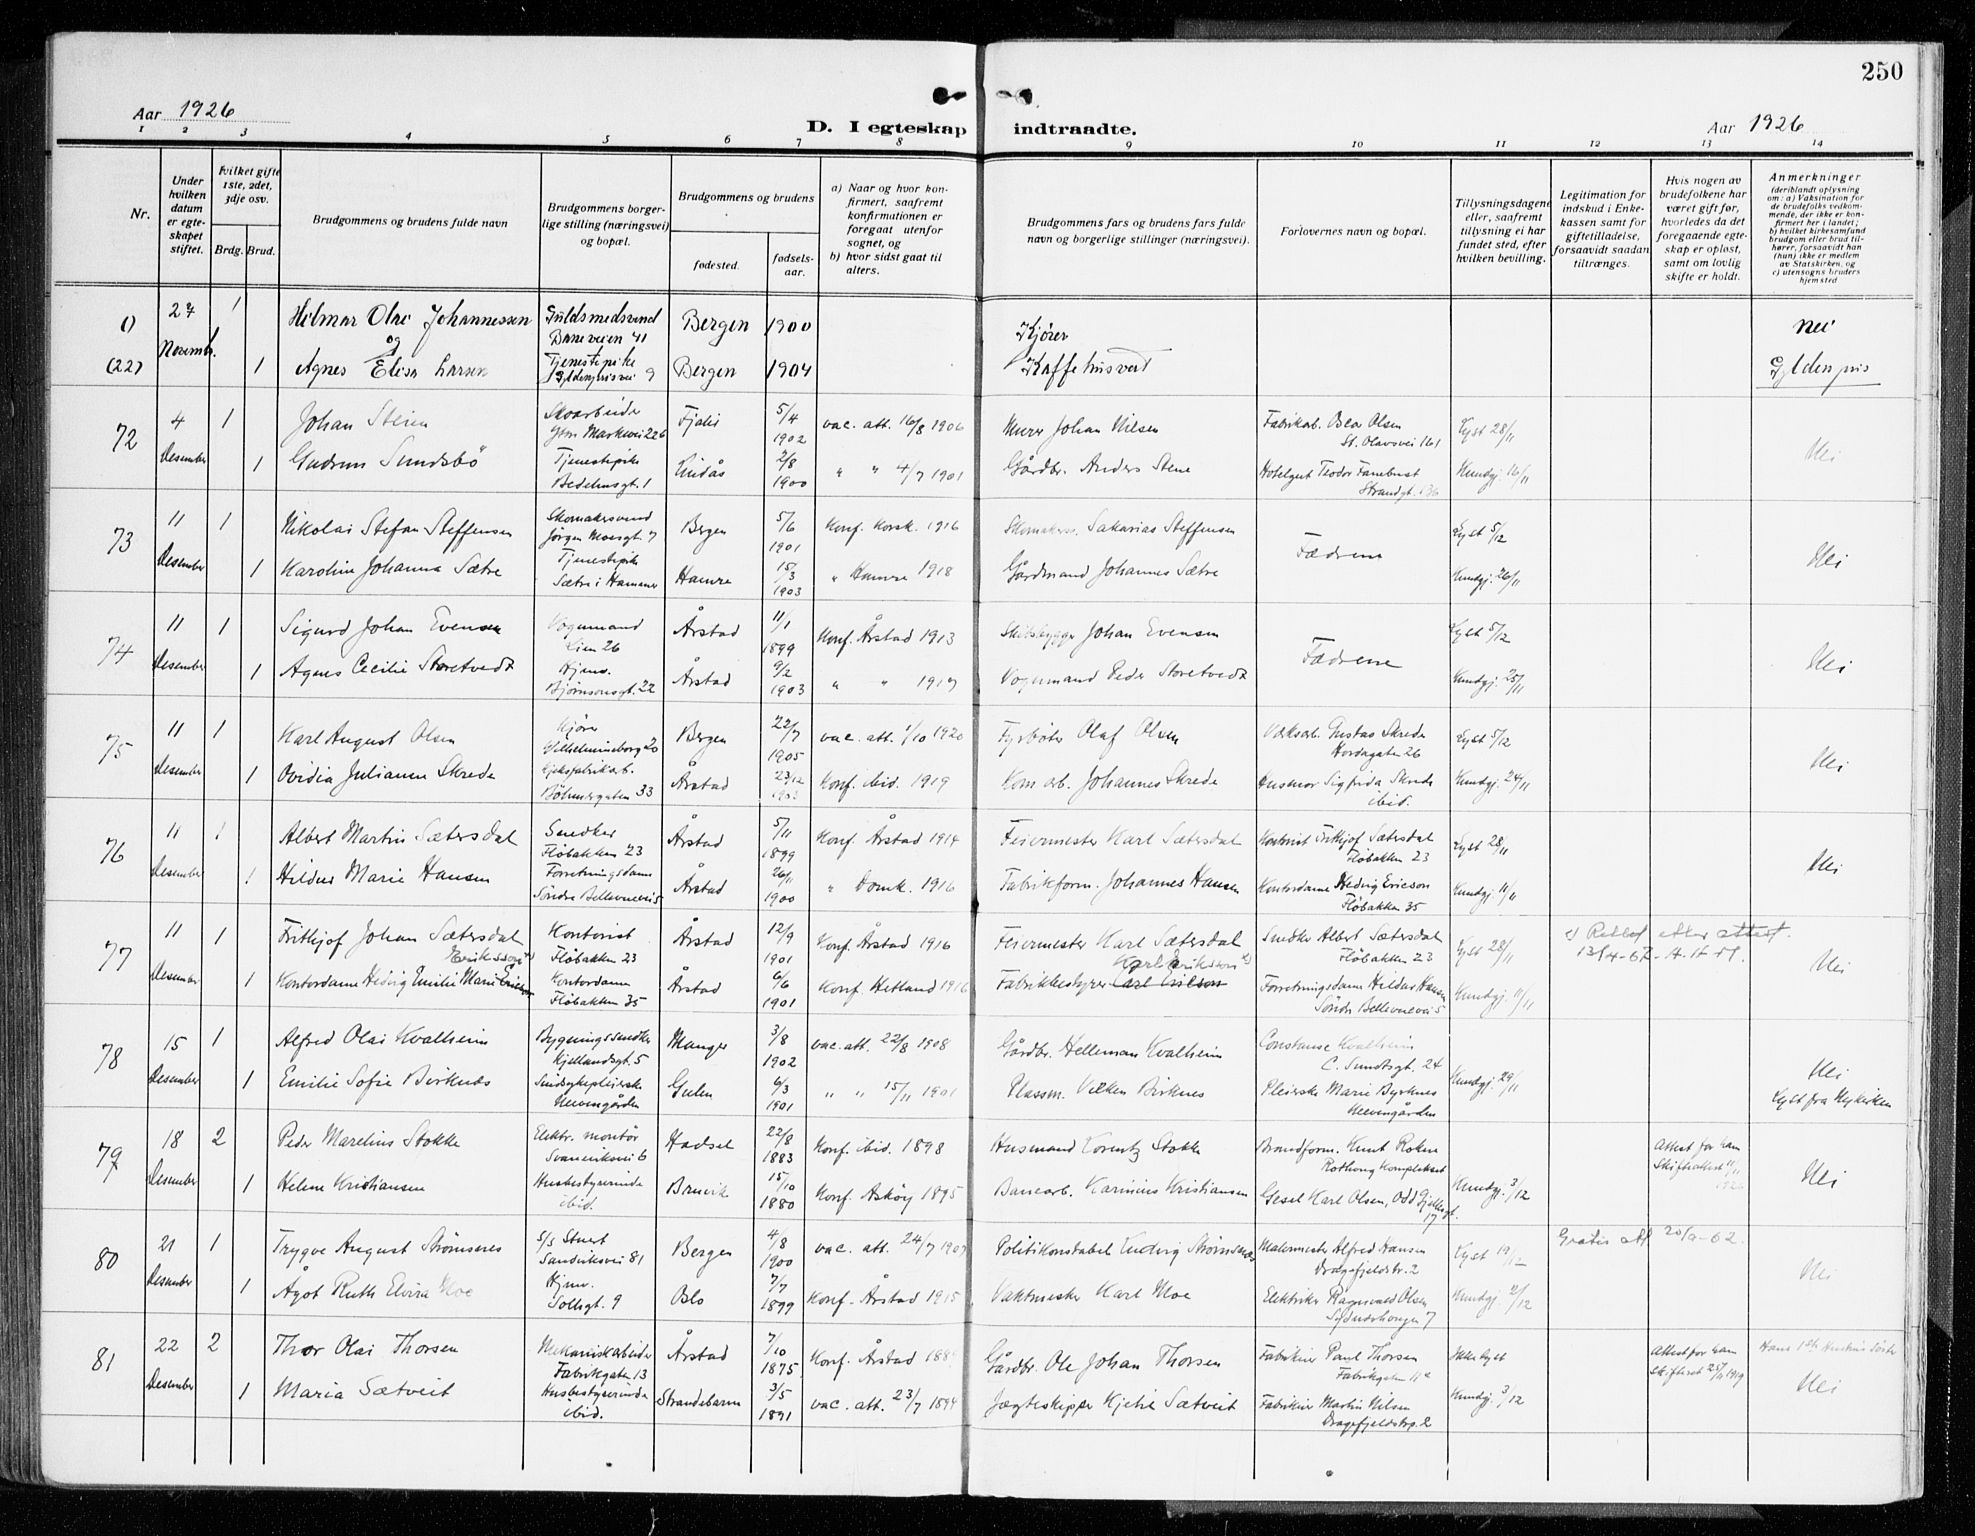 250
Aar 1926
D. I egteskap indtraadte.
Aar 1926
1 2 3 4 5 6 7 8 9 10 11 12 13 14
Nr.
Under hvilken datum er egteskapet stiftet.
Hvilket gifte 1ste, 2det, 3dje osv.
Brdg. Brud.
Brudgommens og brudens fulde navn
Brudgommens borgerlige stilling (næringsvei) og bopæl.
Brudgommens og brudens
fødested. fødselsaar.
a) Naar og hvor konfirmert, saafremt konfirmationen er foregaat utenfor sognet, og
b) hvor sidst gaat til alters.
Brudgommens fars og brudens fars fulde navn og borgerlige stillinger (næringsvei).
Forlovernes navn og bopæl.
Tillysningsdagene eller, saafremt tillysning ei har fundet sted, efter hvilken bevilling.
Legitimation for indskud i Enkekassen samt for giftetilladelse, forsaavidt saadan tiltrænges.
Hvis nogen av brudefolkene har været gift før, hvorledes da det foregaaende egteskap er opløst, samt om lovlig skifte er holdt.
Anmerkninger (deriblandt oplysning om: a) Vaksination for de brudefolks vedkommende, der ikke er konfirmert her i landet; b) hvilket kirkesamfund brudgom eller brud tilhører, forsaavidt han (hun) ikke er medlem av Statskirken, og c) utensogns bruders hjemsted
() 24 1 Hilmar Olai Johannessen Guldsmedsvend Bergen 1900 Kjører nei
Baneveien 41
Novembr. og
(22) 1 Agnes Elisa Larsen Tjenestepike Bergen 1904 Kaffehusvert Gyldenpris
Gyldenprisvei 9
72 4 1 Johan Steien Skoarbeider Fjaler 5/4 1902 vac. att. 16/8 1906 Murer Johan Nilsen Fabrikarb. Olsen Lyst 28/11
St. Olavsvei 161
Desember 1 Gudrun Sundsbö Tjenestepike Lindås 2/8 1900 " " 4/7 1901 Gårdbr. Anders Stene Teodor Fanebust Kundgj. 16/11 Nei
Bedehusgt. 1 Strandgt. 136
73 11 1 Nikolai Stefan Steffensen Skomakersvend Bergen 5/6 1901 Konf. Korsk. 1916 Skomakerm. Sakarias Steffensen Fædrene Lyst 5/12
Jørgen Moesgt. 7
Desember 1 Karoline Johanna Sætre Tjenestepike Hamre 15/3 1903 " Hamre 1918 Gårdmand Johannes Sætre Kundgj. 26/11 Nei
Sætre i Hammer
74 11 1 Sigurd Johan Evensen Vognmand Årstad 11/1 1899 Konf. Årstad 1913 Skibsbygger Johan Evensen Fædrene Lyst 5/12
Lien 26
Desember 1 Agnes Cecilie Storetvedt Hjemv. Årstad 9/2 1903 " " 1917 Vognmand Peder Storetvedt Kundgj. 25/11 Nei
Bjørnsonsgt. 22
75 11 1 Karl August Olsen Kjører Bergen 22/7 1905 vac. att. 1/10 1920 Fyrbøter Olaf Olsen Gustav Skrede Lyst 5/12
Vilhelmineborg 20 Hordagaten 26
Desember 1 Ovidia Julianne Skrede Kjeksfabrikarb. Årstad 23/12 1903 Konf. ibid. 1919 Kom. arb. Johannes Skrede Husmor Sigfrida Skrede Kundgj. 24/11 Nei
Böhmergaten 33 ibid.
76 11 1 Albert Martin Sætersdal Snedker Årstad 5/11 1899 Konf. Årstad 1914 Feiermester Karl Sætersdal Kontorist Frithjof Sætersdal Lyst 28/11
Fløbakken 23 Fløbakken 23
Desember 1 Hildur Marie Hansen Forretningsdame Årstad 26/11 1900 " Domk. 1916 Fabrikform. Johannes Hansen Kontordame Hedvig Ericson Kundgj. 11/11 Nei
Søndre Bellevuevei 5 Fløbakken 35
77 11 1 Frithjof Johan Sætersdal Kontorist Årstad 12/9 1901 Konf. Årstad 1916 Feiermester Karl Sætersdal Snedker Albert Sætersdal Lyst 28/11 Rettet etter attest
Erikssen Fløbakken 23 Karl Eriksson Fløbakken 23 13/4-67
Desember 1 Kontordame Hedvig Emilie Marie Ericson Kontordame Årstad 6/6 1901 Konf. Hetland 1916 Fabrikbestyrer Carl Ericson Forretningsdame Hildur Hansen Kundgj. 11/11 Nei
Fløbakken 35 Søndr. Bellevuevei 5
78 15 1 Alfred Olai Kvalheim Bygningssnedker Manger 3/8 1902 vac. att. 22/8 1908 Gårdbr. Helleman Kvalheim Constanse Kvalheim
Kjellandsgt. 5 C. Sundtsgt. 24
Desember 1 Emilie Sofie Birknes Sindsykepleierske Gulen 6/3 1901 " " 15/11 1901 Plassm. Birknes Pleierske Marie Byrknes Kundgj. 29/11 Nei
Neevengården Neevengården Lyst fra Nykirken
79 18 2 Peder Marelius Stokke Elektr. montør Hadsel 22/8 1883 Konf. ibid. 1898 Husmand Lorentz Stokke Brandform. Knut Attest for ham
Svaneviksvei 6 Rothaug Komplekset Skifteattest
Desember 1 Helene Kristiansen Husbestyrerinde Bruvik 15/10 1880 Konf. Askøy 1895 Banearb. Karinius Kristiansen Karl Olsen, Odd Gjelds gt. 17 Kundgj. 3/12 Nei
ibid.
80 21 1 Trygve August Strømsnes S/S Stuert Bergen 4/8 1900 vac. att. 24/7 1907 Politikonstabel Ludvig Strømsnes Malermester Alfred Hansen Lyst 19/12 Gratis att 20/9-62.
Sandviksvei 81 Dragefjeldstr. 2
Desember 1 Ågot Ruth Elvira Moe Hjemv. Oslo 7/7 1899 Konf. Årstad 1915 Vaktmester Karl Moe Elektriker Ragnvald Olsen Kundgj. 2/12 Nei
Solhgt. 9 Sydneshaugen 7
81 22 2 Thor Olai Thorsen Mekaniskarbeider Årstad 7/10 1875 Konf. Årstad Gårdbr. Ole Johan Thorsen Fabrikeier Paul Thorsen Ikke lyst Attest for ham
Fabrikgaten 13 Fabrikgaten 11a
Desember 1 Maria Sætveit Husbestyrerinde Strandebarm 3/5 1891 vac. att. 23/7 1894 Jægteskipper Kjetil Sætveit Fabrikeier Martin Nilsen Kundgj. 3/12 Nei
ibid. Dragefjeldstrp. 2